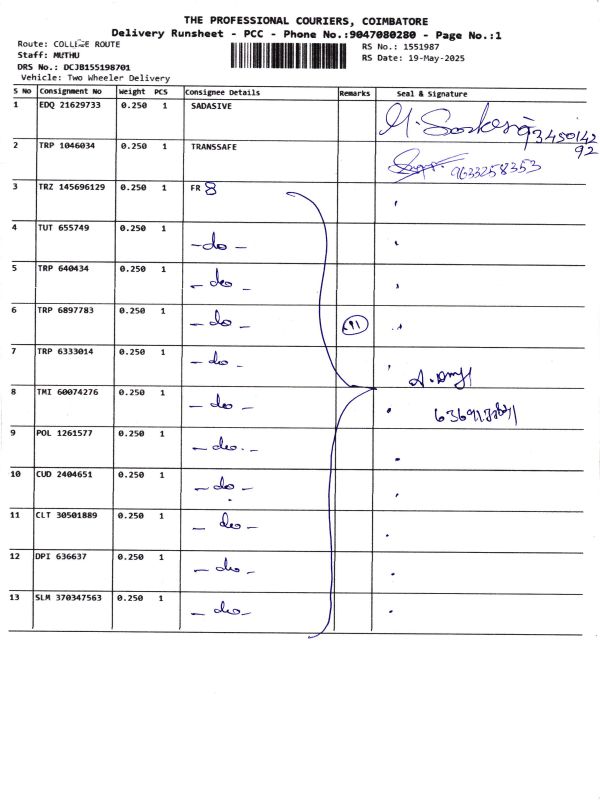 THE PROFESSIONAL COURIERS, COIMBATORE
Delivery Runsheet - PCC - Phone No.:9047080280 - Page No.:1
Route: COLLEGE ROUTE
Staff: MUTHU
DRS No.: DCJB155198701
Vehicle: Two Wheeler Delivery
RS No.: 1551987
RS Date: 19-May-2025
S No Consignment No Weight PCS Consignee Details Remarks Seal & Signature
1 EDQ 21629733 0.250 1 SADASIVE
2 TRP 1046034 0.250 1 TRANSSAFE 9633258353
3 TRZ 145696129 0.250 1 FR 8
4 TUT 655749 0.250 1 -do-
5 TRP 640434 0.250 1 -do-
6 TRP 6897783 0.250 1 -do-
7 TRP 6333014 0.250 1 -do-
8 TMI 60074276 0.250 1 -do-
9 POL 1261577 0.250 1 -do-
10 CUD 2404651 0.250 1 -do-
11 CLT 30501889 0.250 1 -do-
12 DPI 636637 0.250 1 -do-
13 SLM 370347563 0.250 1 -do-